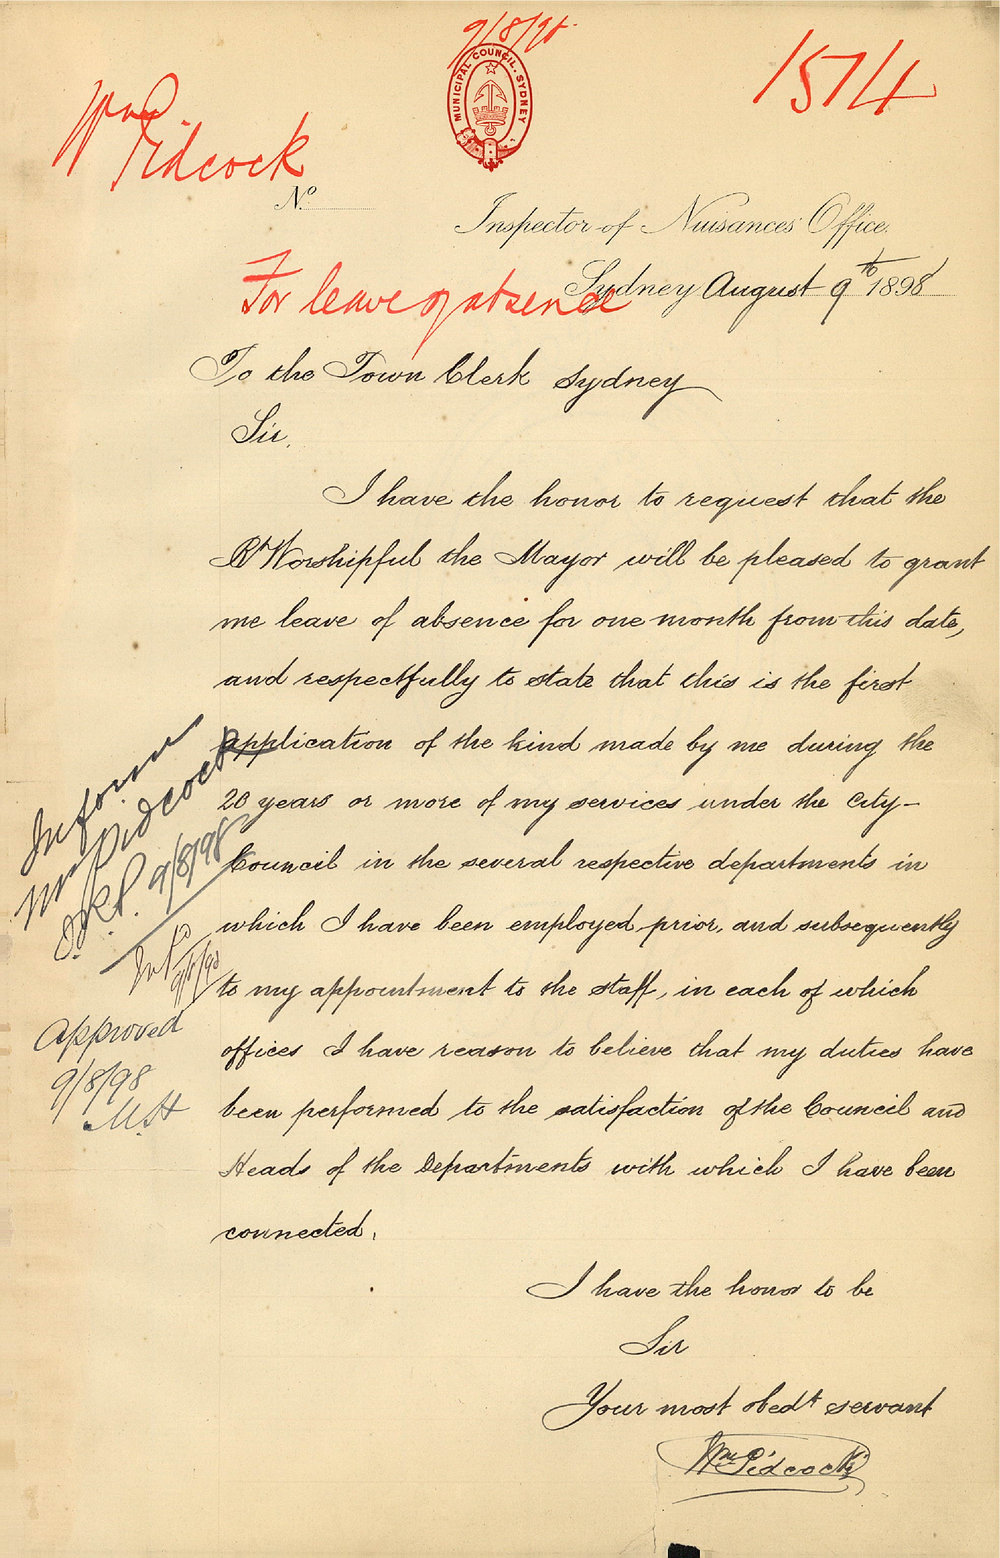 9/8/98
MUNICIPAL COUNCIL. SYDNEY
1514
Wm Pidcock
No
Inspector of Nuisances Office,
Sydney August 9th 1898
For leave of absence
To the Town Clerk Sydney
Sir,
I have the honor to request that the
Rt Worshipful the Mayor will be pleased to grant
me leave of absence for one month from this date,
and respectfully to state that this is the first
application of the kind made by me during the
20 years or more of my services under the City-
Council in the several respective departments in
which I have been employed prior, and subsequently
to my appointment to the staff, in each of which
offices I have reason to believe that my duties have
been performed to the satisfaction of the Council and
Heads of the Departments with which I have been
connected.
I have the honor to be
Sir
Your most obedt servant
Wm Pidcock
Inform
Mr Pidcock
9/8/98
9/8/98
Approved
9/8/98